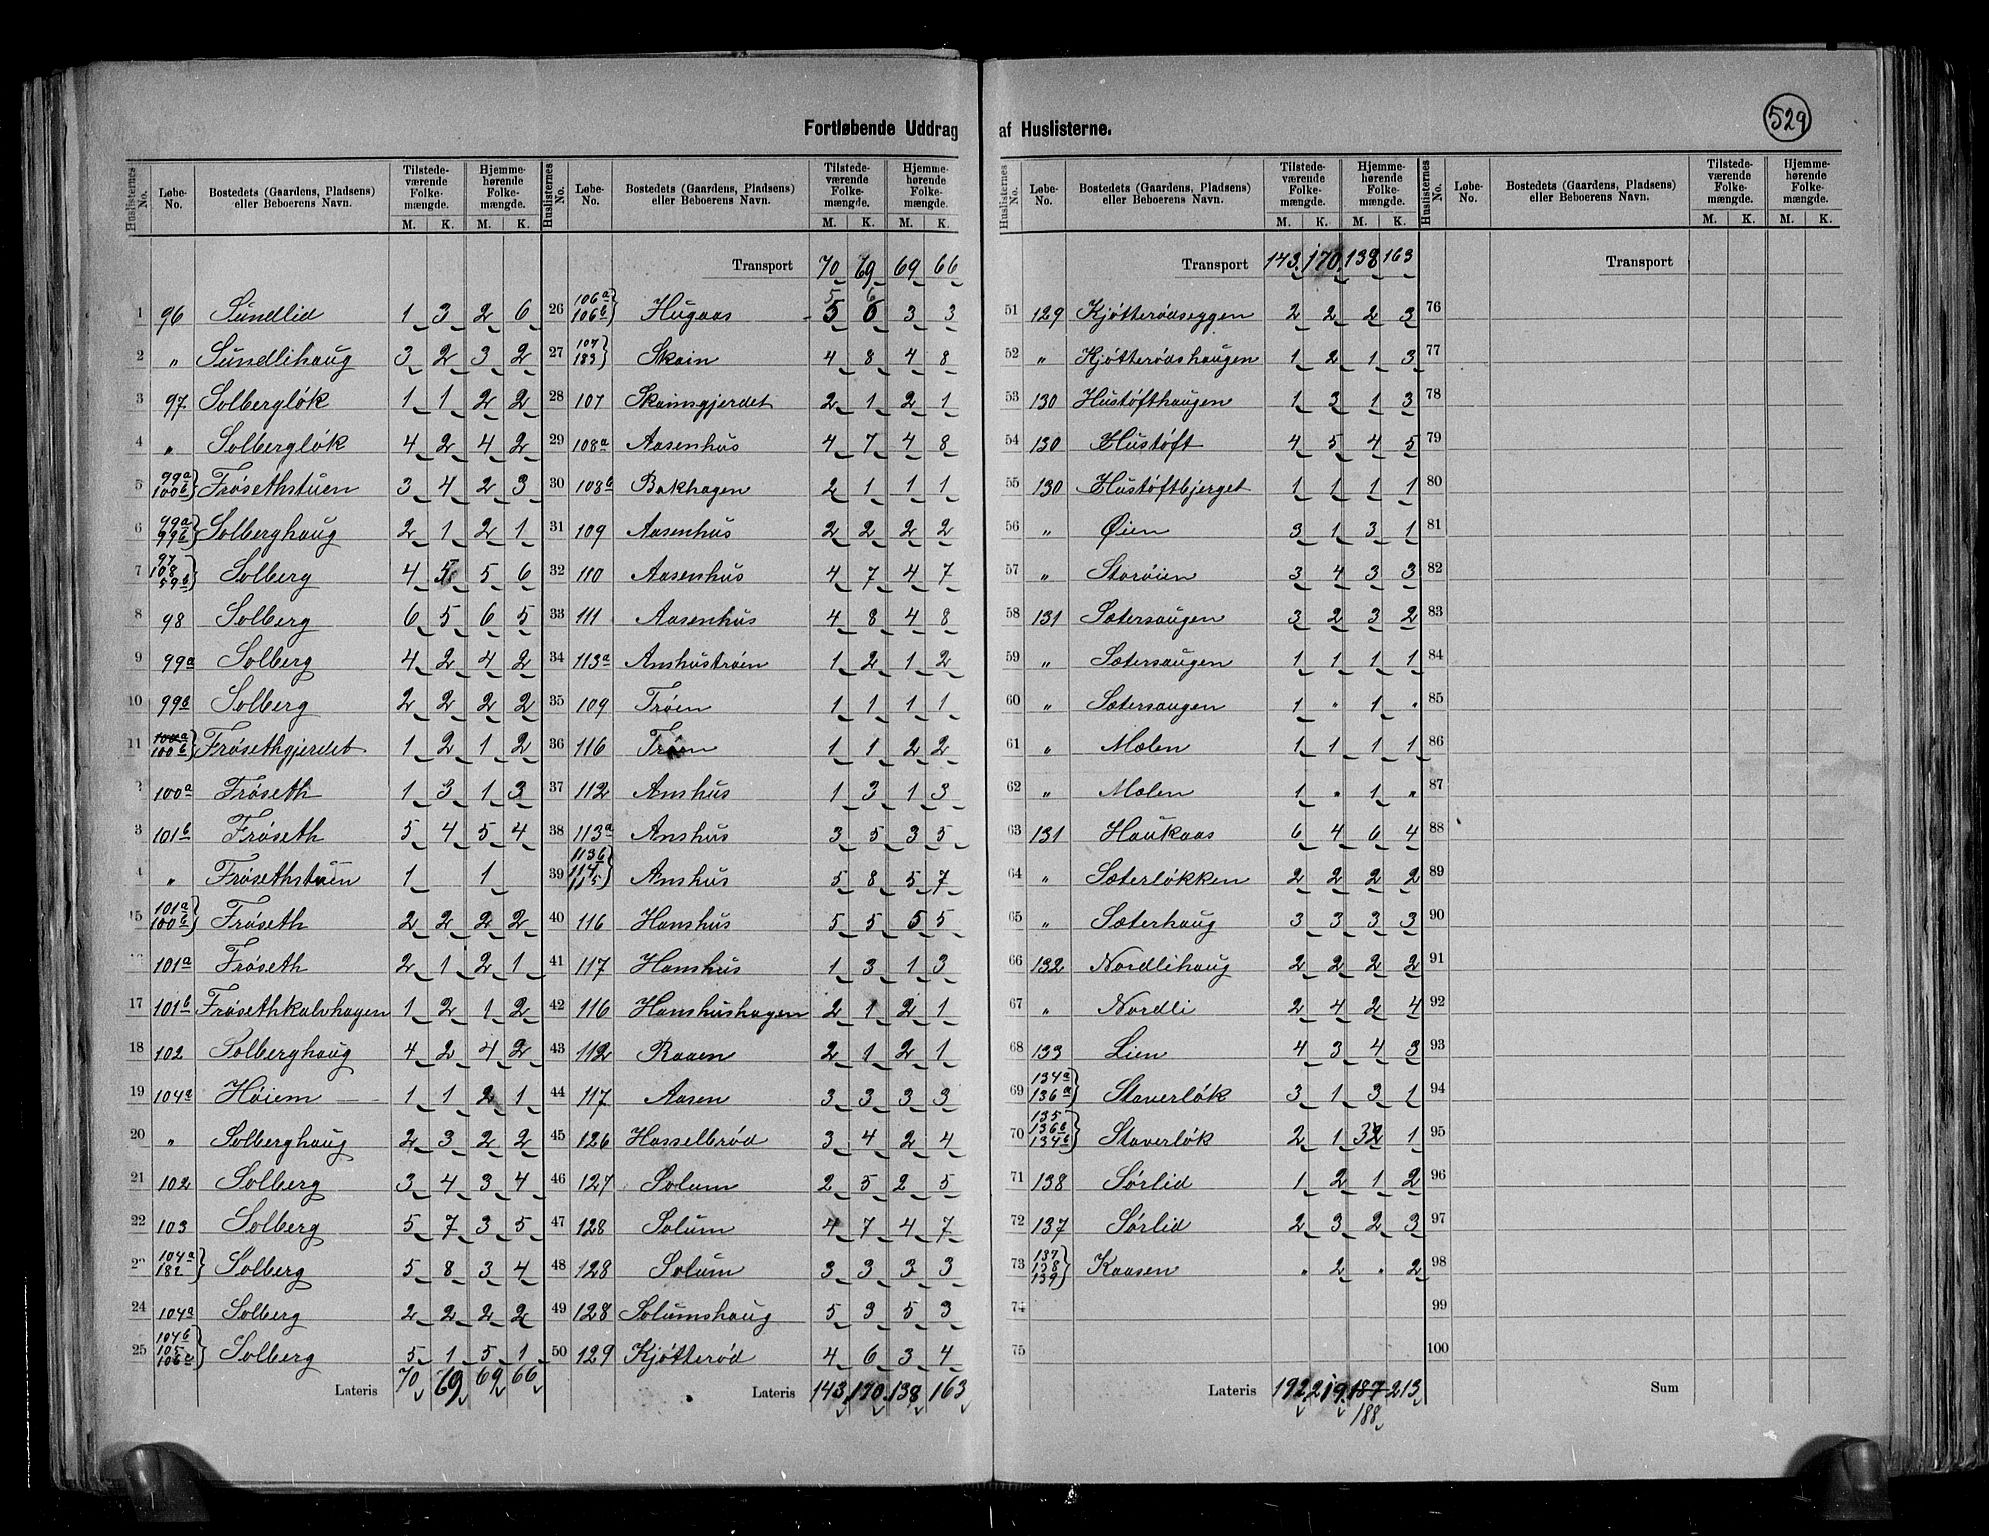 529
Fortløbende Uddrag af Huslisterne.
Huslisternes No. | Løbe-No. | Bostedets (Gaardens, Pladsens) eller Beboerens Navn. | Tilstedeværende Folkemængde. M. K. | Hjemmehørende Folkemængde. M. K.
1 96 Sundlid 1 3 2 6
2 " Sundlihaug 3 2 3 2
3 97 Solbergløk 1 1 2 2
4 " Solbergløk 4 2 4 2
5 99a 100b } Frøsethstuen 3 4 2 3
6 99a 99b } Solberghaug 2 1 2 1
7 97 108 59b } Solberg 4 5 5 6
8 98 Solberg 6 5 6 5
9 99a Solberg 4 2 4 2
10 99b Solberg 2 2 2 2
11 100a 100b } Frøsethgjerdet 1 2 1 2
2 100a Frøseth 1 3 1 3
3 101b Frøseth 5 4 5 4
4 " Frøsethstuen 1 1
15 101a 100b } Frøseth 2 2 2 2
101a Frøseth 2 1 2 1
17 101b Frøsethkalvhagen 1 2 1 2
18 102 Solberghaug 4 2 4 2
19 104a Høiem 1 1 2 1
20 " Solberghaug 2 3 2 2
21 102 Solberg 3 4 3 4
22 103 Solberg 5 7 3 5
2 104a 182 } Solberg 5 8 3 4
24 104a Solberg 2 2 2 2
25 104b 105 106c } Solberg 5 1 5 1
Lateris 70 69 69 66
Huslisternes No. | Løbe-No. | Bostedets (Gaardens, Pladsens) eller Beboerens Navn. | Tilstedeværende Folkemængde. M. K. | Hjemmehørende Folkemængde. M. K.
Transport 70 69 69 66
5 6
26 106a 106b } Hugaas 5 6 3 3
27 107 183 } Skain 4 8 4 8
28 107 Skainsgjerdet 2 1 2 1
29 108a Aasenhus 4 7 4 8
30 108b Bakhagen 2 1 1 1
31 109 Aasenhus 2 2 2 2
32 110 Aasenhus 4 7 4 7
33 111 Aasenhus 4 8 4 8
34 113a Anshustrøen 1 2 1 2
35 109 Trøen 1 1 1 1
36 116 Trøen 1 1 2 2
37 112 Anshus 1 3 1 3
38 113a Anshus 3 5 3 5
39 113b 114 115 } Anshus 5 8 5 7
40 116 Hanshus 5 5 5 5
41 117 Hanshus 1 3 1 3
42 116 Hanshushagen 2 1 2 1
43 112 Raaen 2 1 2 1
44 117 Aasen 3 3 3 3
45 126 Hasselbrød 3 4 2 4
46 127 Solum 2 5 2 5
47 128 Solum 4 7 4 7
48 128 Solum 3 3 3 3
49 128 Solumshaug 5 3 5 3
50 129 Kjøtterød 4 6 3 4
Lateris 143 170 138 163
Huslisternes No. | Løbe-No. | Bostedets (Gaardens, Pladsens) eller Beboerens Navn. | Tilstedeværende Folkemængde. M. K. | Hjemmehørende Folkemængde. M. K.
Transport 143 170 138 163
51 129 Kjøtterødseggen 2 2 2 3
52 " Kjøtterødshaugen 1 2 1 3
53 130 Hustøfthaugen 1 3 1 3
54 130 Hustøft 4 5 4 5
55 130 Hustøftbjerget 1 1 1 1
56 " Øien 3 1 3 1
57 " Storøien 3 4 3 3
58 131 Sætersaugen 3 2 3 2
59 " Sætersaugen 1 1 1 1
60 " Sætersaugen 1 " 1 "
61 " Mælen 1 1 1 1
62 " Mælen 1 " 1 "
63 131 Haukaas 6 4 6 4
64 " Sæterløkken 2 2 2 2
65 " Sæterhaug 3 3 3 3
66 132 Nordlihaug 2 2 2 2
67 " Nordli 2 4 2 4
68 133 Lien 4 3 4 3
69 134a 136a } Staverløk 3 1 3 1
70 135 136b 134b } Staverløk 2 1 32 1
71 138 Sørlid 1 2 1 2
72 137 Sørlid 2 3 2 3
73 137 138 139 } Kaasen " 2 " 2
74
75
Lateris 192 219 187 213
188
Huslisternes No. | Løbe-No. | Bostedets (Gaardens, Pladsens) eller Beboerens Navn. | Tilstedeværende Folkemængde. M. K. | Hjemmehørende Folkemængde. M. K.
Transport
76
77
78
79
80
81
82
83
84
85
86
87
88
89
90
91
92
93
94
95
96
97
98
99
100
Sum